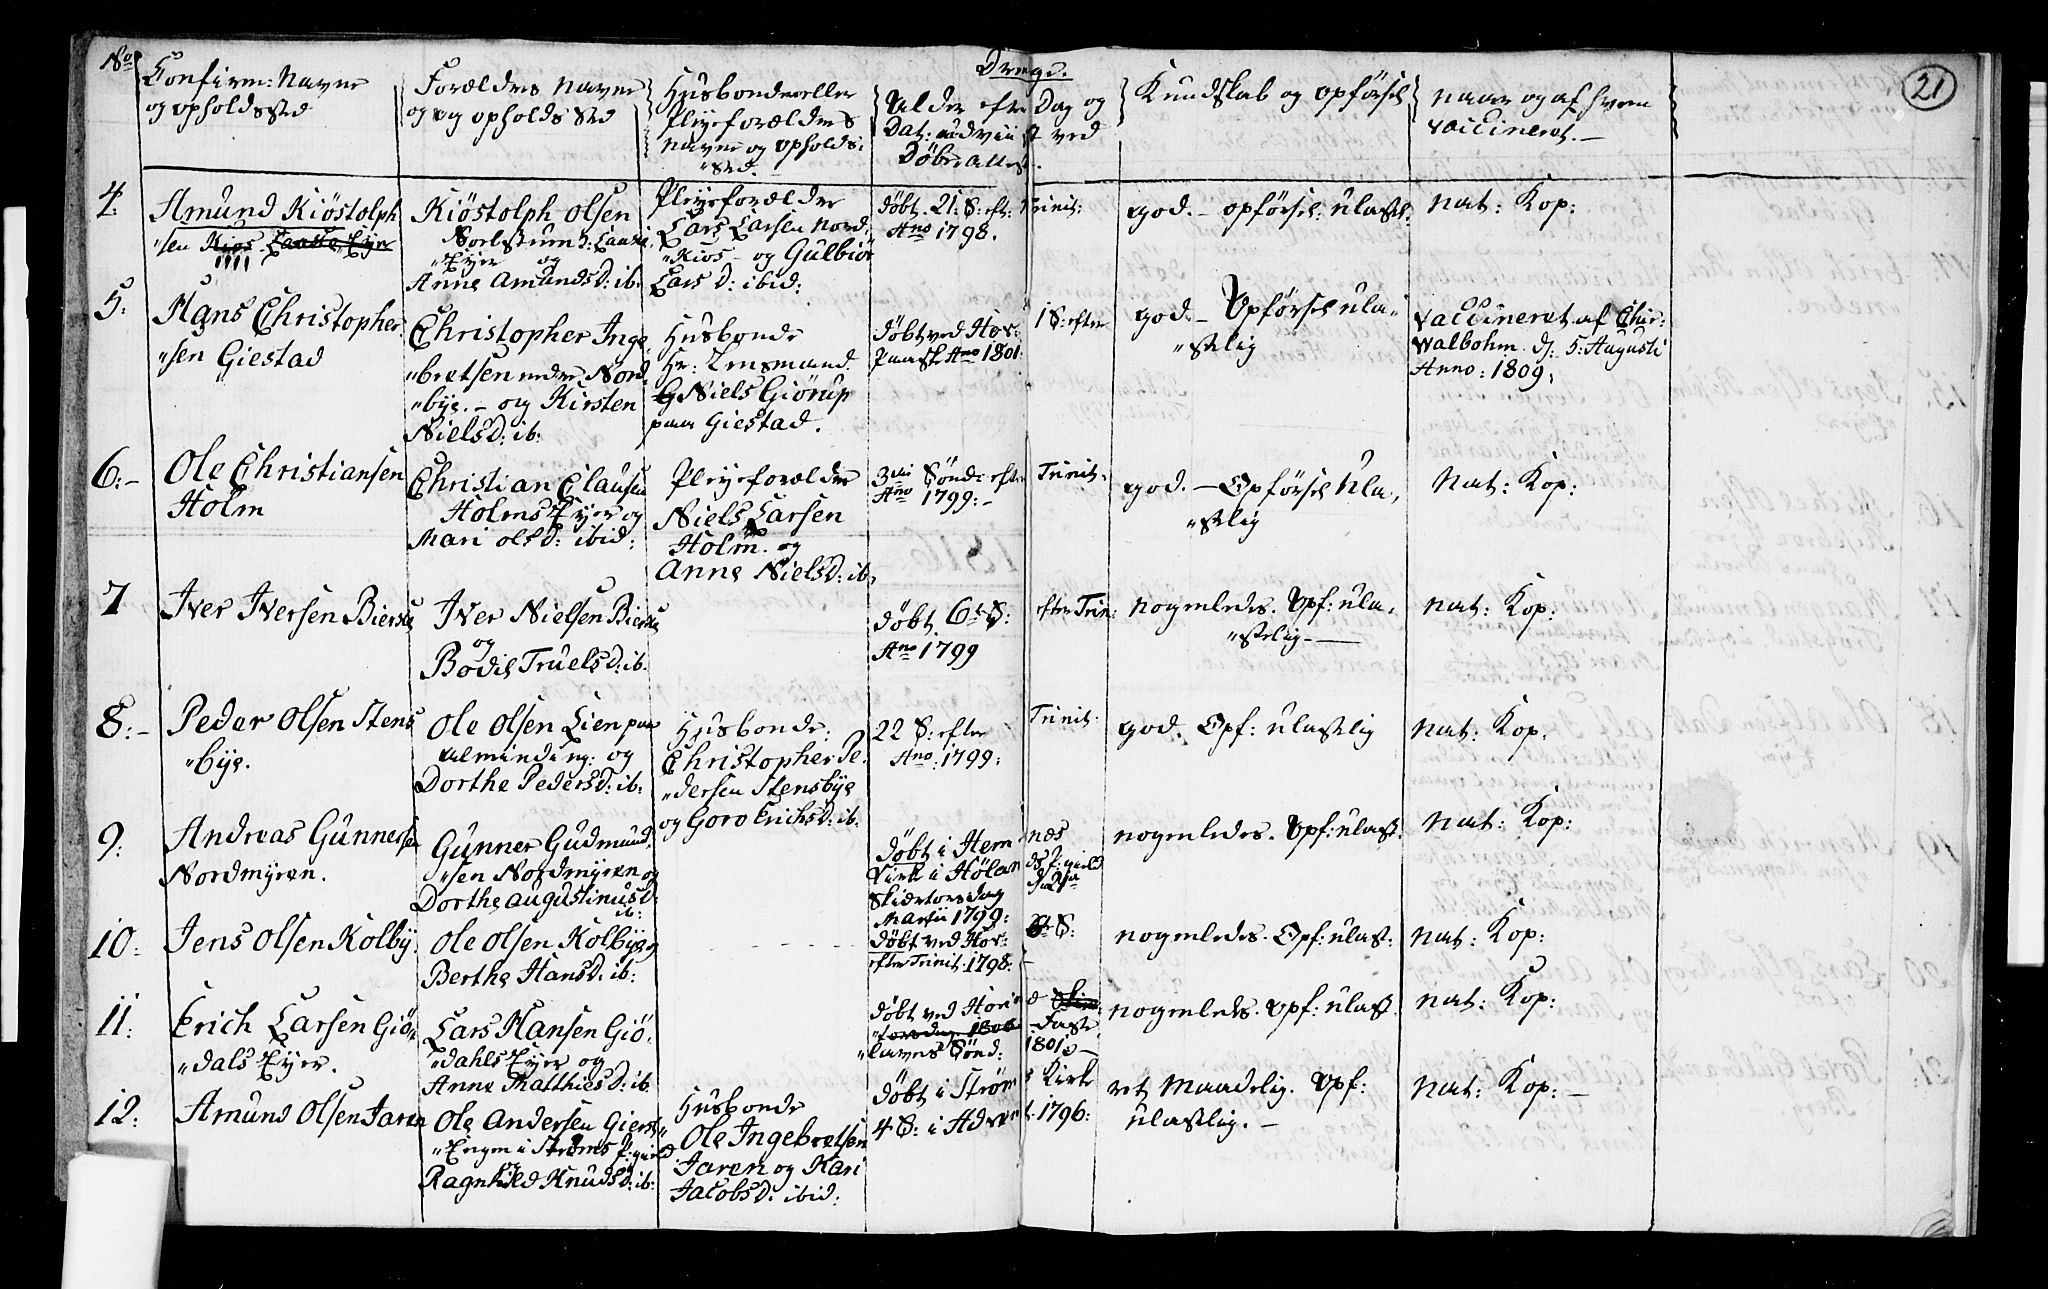 No Confirm: Navne og opholdssted
Forældres Navne og opholdssted
Husbonde eller Pleyeforældres Navne og opholds- "sted.
Drenge.
Alder efter Dat: udviist ved Døbe attest.
Dag og
Kundskab og opførsel
naar og af hvem vaccineret. –
21
4. Amund Kiöstolph
"sen
Kiöstolph Olsen
"Eyer og
Anne Amundsd: ib.
Pleyeforældre
Lars Larsen Nord,
"Kios – og Gulbiör
Lars d: ibid:
döbt. 21: S: eft: Trinit:
Ano 1798.
god. – opförsel: ulastl.
Nat: Kop:
5: Hans Christopher
"sen Giestad
Christopher Inge
"bretsen nedre Nord
"bye. – og Kirsten
Nielsd: ib:
Husbonde
G Niels Giörup
paa Giestad.
döbt ved Hov: 1 S: efter
Paask Ano 1801:
god. – Opförsel ula-
"stelig
Vaccineret af Chir:
Walbohm d: 5: Augusti
Anno: 1809:
6: – Ole Christiansen
Holm
Christian Clausen
Holms Eyer og
Mari Olsd: ibid:
Pleyeforældre
Niels Larsen
Holm. og
Anne Nielsd: ib.
3die Sönd: efter Trinit:
Ano 1799: –
god. – Opförsel Ula,
"stelig
Nat: Kop:
7 Iver Iversen
Iver Nielsen
og
Bodil Truelsd: ib.
döbt 6te S: efter Trin:
Ano 1799
nogenledes. Opf: ula,
"stelig –
Nat: Kop:
8: – Peder Olsen Stens
"bye.
Ole Olsen Lien paa
Alminding: og
Dorthe Pedersd: ib:
Husbonde:
Christopher Pe-
"dersen Stensbye
og Goro Erichsd: ib:
22 S: efter Trinit:
Ano 1799:
god. Opf: ulastelig
Nat: Kop.
9: Andreas Gunnersen
Nordmyren.
Gunner Gudmund,
"sen Nordmyren og
Dorthe Augustinusd:
ib:
döbt i Hemnæs
Kirke i Hölands P:gield
Skiertorsdag
Martii 1799:
nogenledes. Opf: ulast.
Nat: Kop:
10: Jens Olsen Kolbye
Ole Olsen Kolbye og
Berthe Hansd: ib:
döbt ved Hov: S:
efter Trinit: 1798:
nogenledes. Opf: ulast:
Nat: Kop:
11: Erich Larsen Giö-
"dals Eyer.
Lars Hansen Giö-
"dahls Eyer og
Anne Matthiesd: ib
döbt ved
"lavns Sönd: 1801 –
nogenleds. Opf: ulast.
Nat: Kop:
12: Amund Olsen Jaren
Ole Andersen Gierst,
"Engen i Ströms P:gield
og
Ragnhild Knudsd: ib:
Husbonde
Ole Ingebretsen
Jaren og Kari
Jacobsd: ibid:
döbt i Ströms Kirke
4 S: i Advent. 1796:
ret Maadelig. Opf:
ulastlig. –
Nat: Kop: –